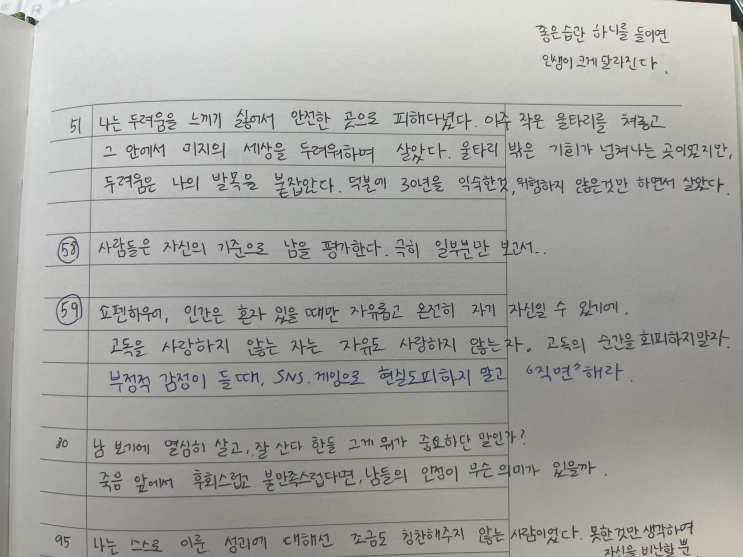 좋은습관 하나를 들이면
인생이 크게 달라진다.
51 나는 두려움을 느끼기 싫어서 안전한 곳으로 피해다녔다. 아주 작은 울타리를 쳐놓고
그 안에서 미지의 세상을 두려워하며 살았다. 울타리 밖은 기회가 넘쳐나는 곳이었지만,
두려움은 나의 발목을 붙잡았다. 덕분에 30년을 익숙한것, 위험하지 않은것만 하면서 살았다.
58 사람들은 자신의 기준으로 남을 평가한다. 극히 일부분만 보고서..
59 쇼펜하우어, 인간은 혼자 있을 때만 자유롭고 온전히 자기 자신일 수 있기에.
고독을 사랑하지 않는 자는 자유도 사랑하지 않는 자. 고독의 순간을 회피하지말라.
부정적 감정이 들 때, SNS. 게임으로 현실도피하지 말고 "직면"해라.
80 남 보기에 열심히 살고, 잘 산다 한들 그게 뭐가 중요하단 말인가?
죽음 앞에서 후회스럽고 불만족스럽다면, 남들의 인정이 무슨 의미가 있을까.
95 나는 스스로 이룬 성과에 대해선 조금도 칭찬해주지 않는 사람이었다. 못한것만 생각하여
자신을 비난할 뿐